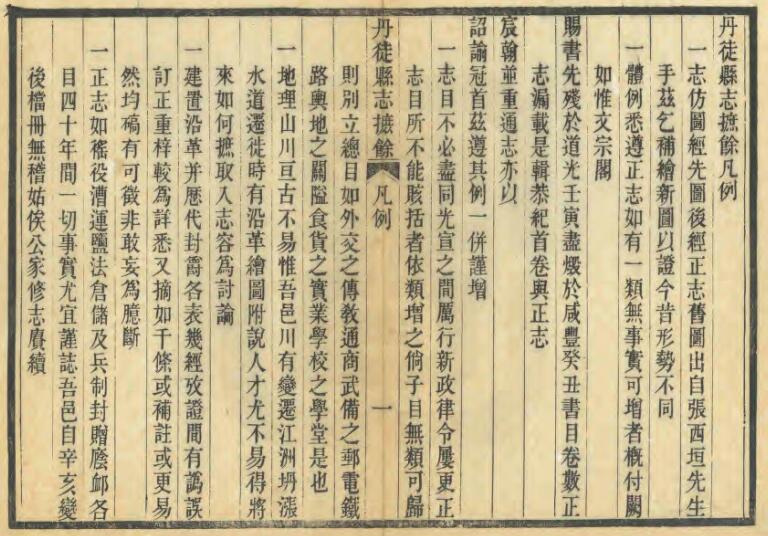 丹徒縣志摭餘凡例
一志仿圖經先圖後經正志舊圖出自張西垣先生
手茲乞補繪新圖以證今昔形勢不同
一體例悉遵正志如有一類無事實可增者概付闕
如惟文宗閣
賜書先殘於道光壬寅盡燬於咸豐癸丑書目卷數正
志漏載是輯恭紀首卷與正志
宸翰並重通志亦以
詔諭冠首茲遵其例一併謹增
一志目不必盡同光宣之間厲行新政律令屢更正
志目所不能賅括者依類增之倘子目無類可歸
丹徒縣志摭餘 凡例 一
則別立總目如外交之傳教通商武備之郵電鐵
路輿地之關隘食貨之實業學校之學堂是也
一地理山川亘古不易惟吾邑川有變遷江洲坍漲
水道遷徙時有沿革繪圖附說人才尤不易得將
來如何摭取入志容為討論
一建置沿革并歷代封爵各表幾經攷證間有譌誤
訂正重梓較為詳悉又摘如干條或補註或更易
然均碻有可徵非敢妄為臆斷
一正志如徭役漕運鹽法倉儲及兵制封贈廕卹各
目四十年間一切事實尤宜謹誌吾邑自辛亥變
後檔冊無稽姑俟公家修志賡續